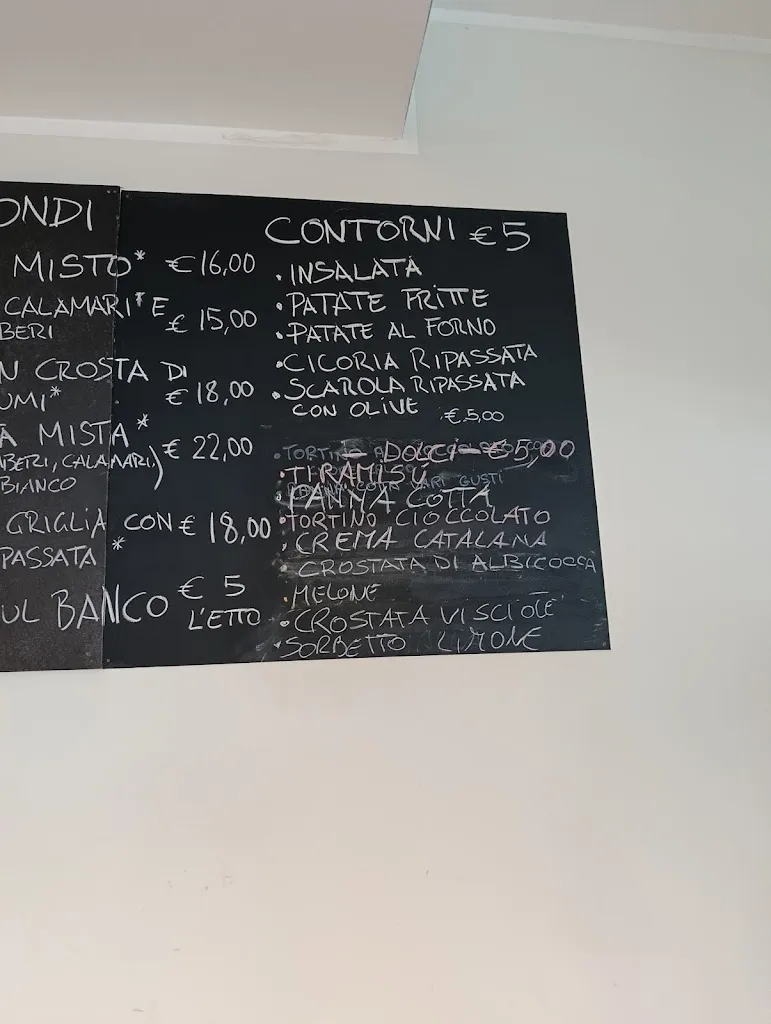 ONDI
MISTO* €16,00
CALAMARI*E
BERI € 15,00
N CROSTA DI
UMI* € 18,00
A MISTA* € 22,00
BERI, CALAMARI,)
BIANCO
GRIGLIA CON € 18,00
PASSATA *
UL BANCO € 5
L'ETTO
CONTORNI € 5
• INSALATA
• PATATE FRITTE
• PATATE AL FORNO
• CICORIA RIPASSATA
• SCAROLA RIPASSATA
CON OLIVE €5,00
DOLCI - € 5,00
• TIRAMISÚ
PANNA COTTA
• TORTINO CIOCCOLATO
• CREMA CATALANA
• CROSTATA DI ALBICOCCA
• MELONE
• CROSTATA VISCIOLE
• SORBETTO LIMONE